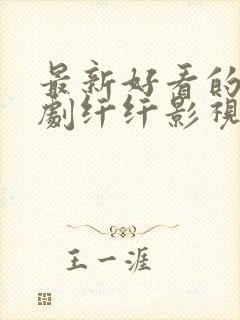 最新好看的
劇纤纤影視
王一涯